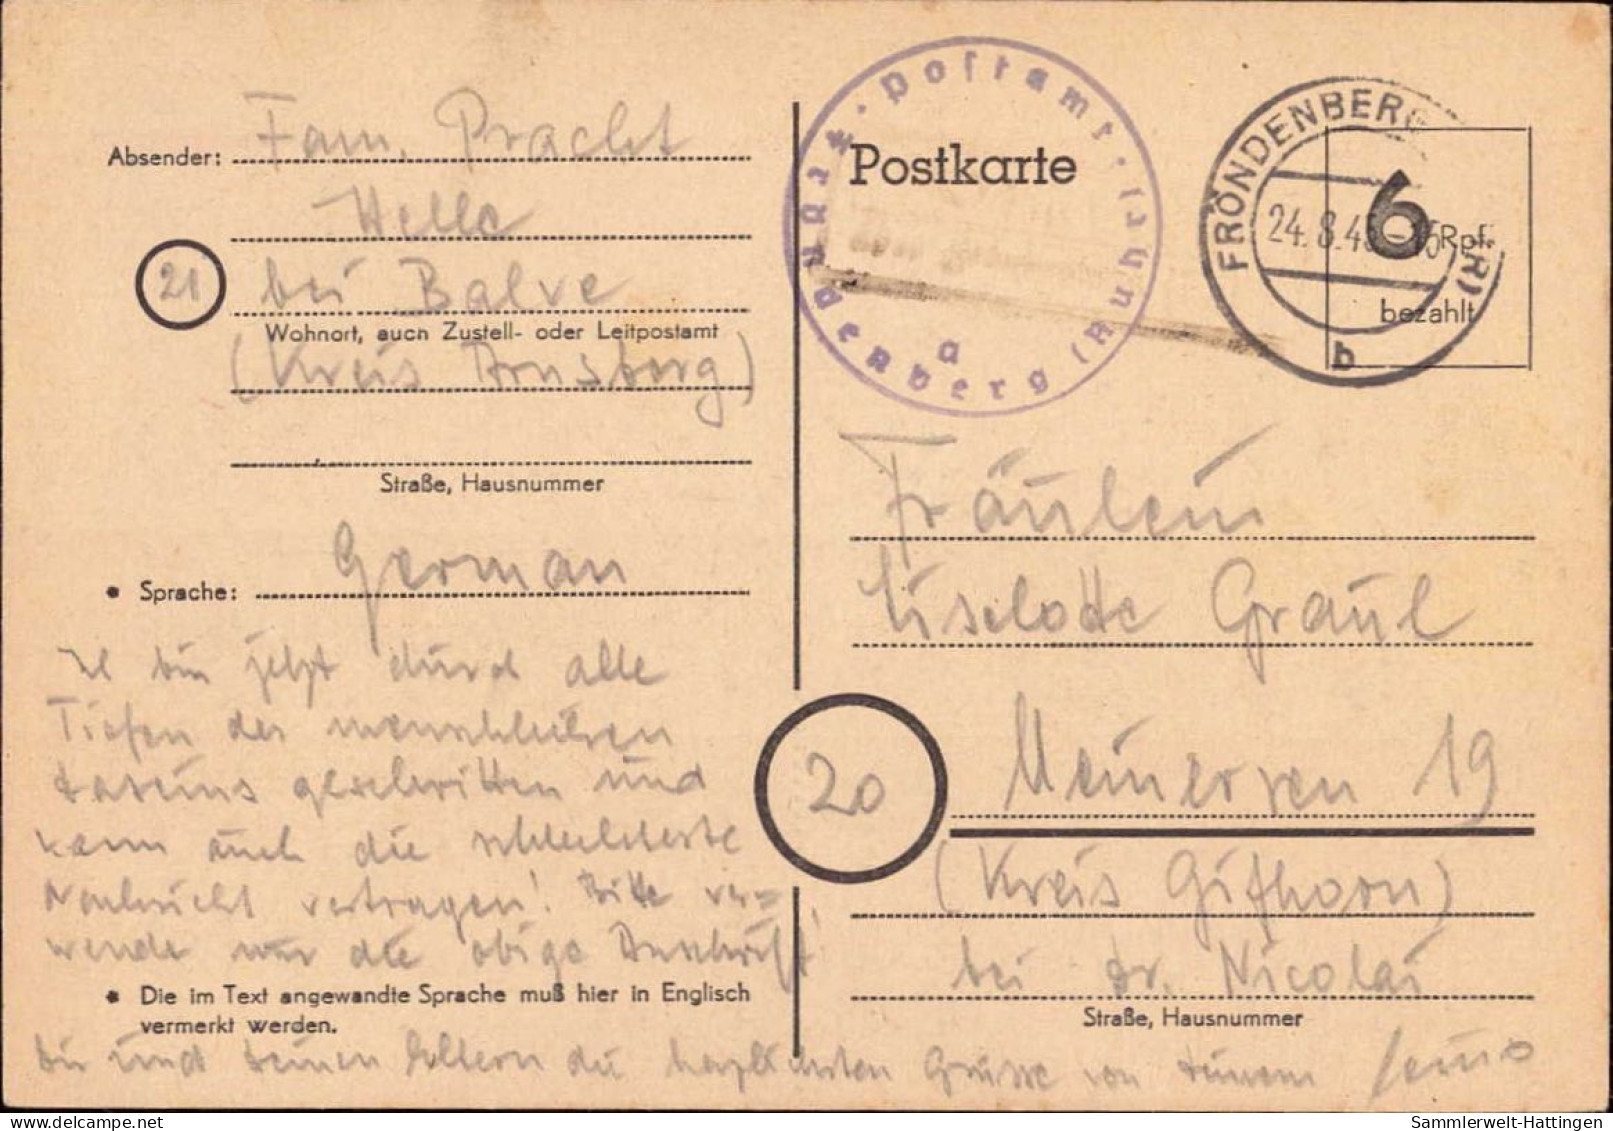 Absender: Fam. Pracht
Helle
21 bei Balve
Wohnort, auch Zustell- oder Leitpostamt
(Kreis Arnsberg)
Straße, Hausnummer
• Sprache: German
Ich bin jetzt durch alle
Tiefen des menschlichen
Daseins geschritten und
kann auch die schlechteste
Nachricht vertragen! Bitte ver=
wende nur die obige Anschrift!
• Die im Text angewandte Sprache muß hier in Englisch
vermerkt werden.
Dir und Deinen Eltern die herzlichsten Grüsse von Deinem
Postkarte
Postamt
Fröndenberg (Ruhr)
a
FRÖNDENBERG
24.8.4
b
6 Rpf.
bezahlt
Fräulein
Liselotte Graül
20
Meinersen 19
(Kreis Gifhorn)
bei Dr. Nicolai
Straße, Hausnummer
Sammlerwelt-Hattingen